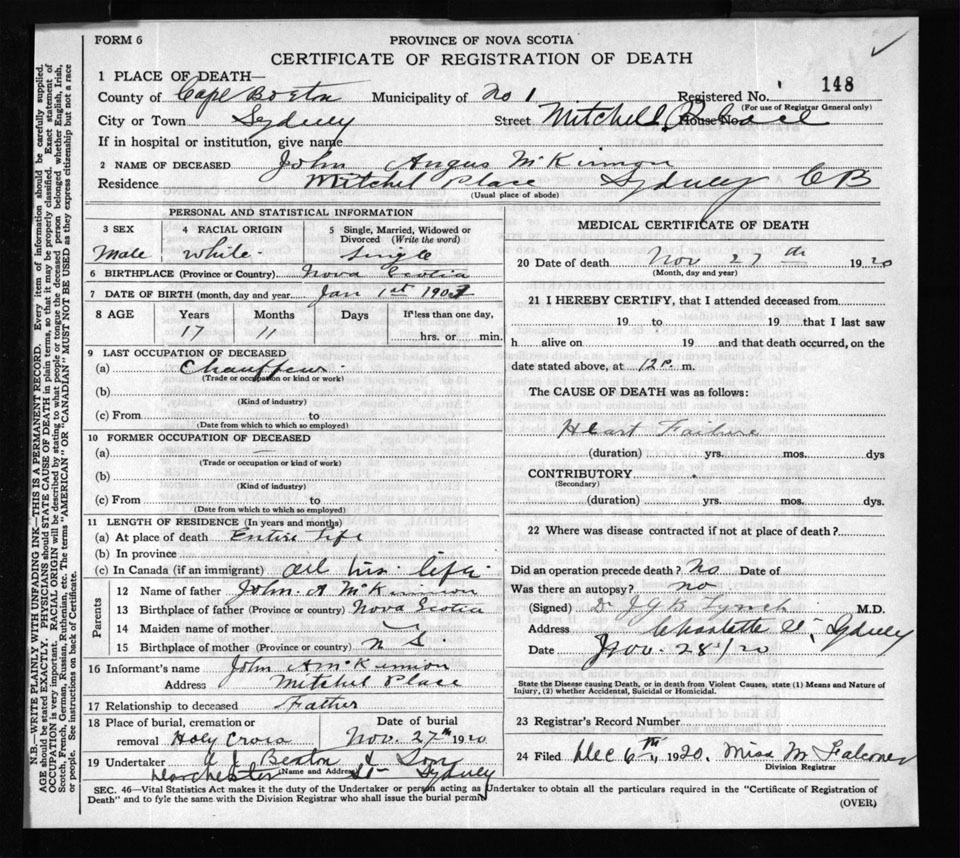 FORM 6
PROVINCE OF NOVA SCOTIA
CERTIFICATE OF REGISTRATION OF DEATH
1 PLACE OF DEATH—
County of Cape Breton Municipality of No 1 Registered No. 148
(For use of Registrar General only)
City or Town Sydney Street Mitchell Place House No.
If in hospital or institution, give name
2 NAME OF DECEASED John Angus McKinnon
Residence Mitchel Place Sydney CB
(Usual place of abode)
PERSONAL AND STATISTICAL INFORMATION
3 SEX 4 RACIAL ORIGIN 5 Single, Married, Widowed or Divorced (Write the word)
Male White Single
6 BIRTHPLACE (Province or Country) Nova Scotia
7 DATE OF BIRTH (month, day and year) Jan 1st 1903
8 AGE Years Months Days If less than one day,
17 11 hrs. or min.
9 LAST OCCUPATION OF DECEASED
(a) Chauffeur
(Trade or occupation or kind or work)
(b)
(Kind of industry)
(c) From to
(Date from which to which so employed)
10 FORMER OCCUPATION OF DECEASED
(a) —
(Trade or occupation or kind of work)
(b)
(Kind of industry)
(c) From to
(Date from which to which so employed)
11 LENGTH OF RESIDENCE (In years and months)
(a) At place of death Entire Life
(b) In province
(c) In Canada (if an immigrant) all his life
Parents
12 Name of father John A McKinnon
13 Birthplace of father (Province or country) Nova Scotia
14 Maiden name of mother
15 Birthplace of mother (Province or country) N S
16 Informant's name John A McKinnon
Address Mitchel Place
17 Relationship to deceased Father
18 Place of burial, cremation or removal Holy Cross
Date of burial Nov. 27th 1920
19 Undertaker A J Beaton & Son
Dorchester St Sydney
(Name and Address)
MEDICAL CERTIFICATE OF DEATH
20 Date of death Nov. 27th 1920
(Month, day and year)
21 I HEREBY CERTIFY, that I attended deceased from
19 to 19 that I last saw
h alive on 19 and that death occurred, on the
date stated above, at 12 P. m.
The CAUSE OF DEATH was as follows:
Heart Failure
(duration) yrs. mos. dys
CONTRIBUTORY
(Secondary)
(duration) yrs. mos. dys.
22 Where was disease contracted if not at place of death?
Did an operation precede death? No Date of
Was there an autopsy? no
(Signed) Dr J G B Lynch M.D.
Address Charlotte St, Sydney
Date Nov. 28/20
State the Disease causing Death, or in death from Violent Causes, state (1) Means and Nature of
Injury, (2) whether Accidental, Suicidal or Homicidal.
23 Registrar's Record Number
24 Filed Dec 6th, 1920. Miss M Falconer
Division Registrar
SEC. 46—Vital Statistics Act makes it the duty of the Undertaker or person acting as Undertaker to obtain all the particulars required in the "Certificate of Registration of
Death" and to fyle the same with the Division Registrar who shall issue the burial permit
(OVER)
N.B.—WRITE PLAINLY WITH UNFADING INK—THIS IS A PERMANENT RECORD. Every item of information should be carefully supplied.
AGE should be stated EXACTLY. PHYSICIANS should STATE CAUSE OF DEATH in plain terms, so that it may be properly classified. Exact statement of
OCCUPATION is very important. RACIAL ORIGIN will be described by stating to what people or tongue the deceased person belonged whether English, Irish,
Scotch, French, German, Russian, Ruthenian, etc. The terms "AMERICAN" OR "CANADIAN" MUST NOT BE USED as they express citizenship but not a race
or people. See instructions on back of Certificate.